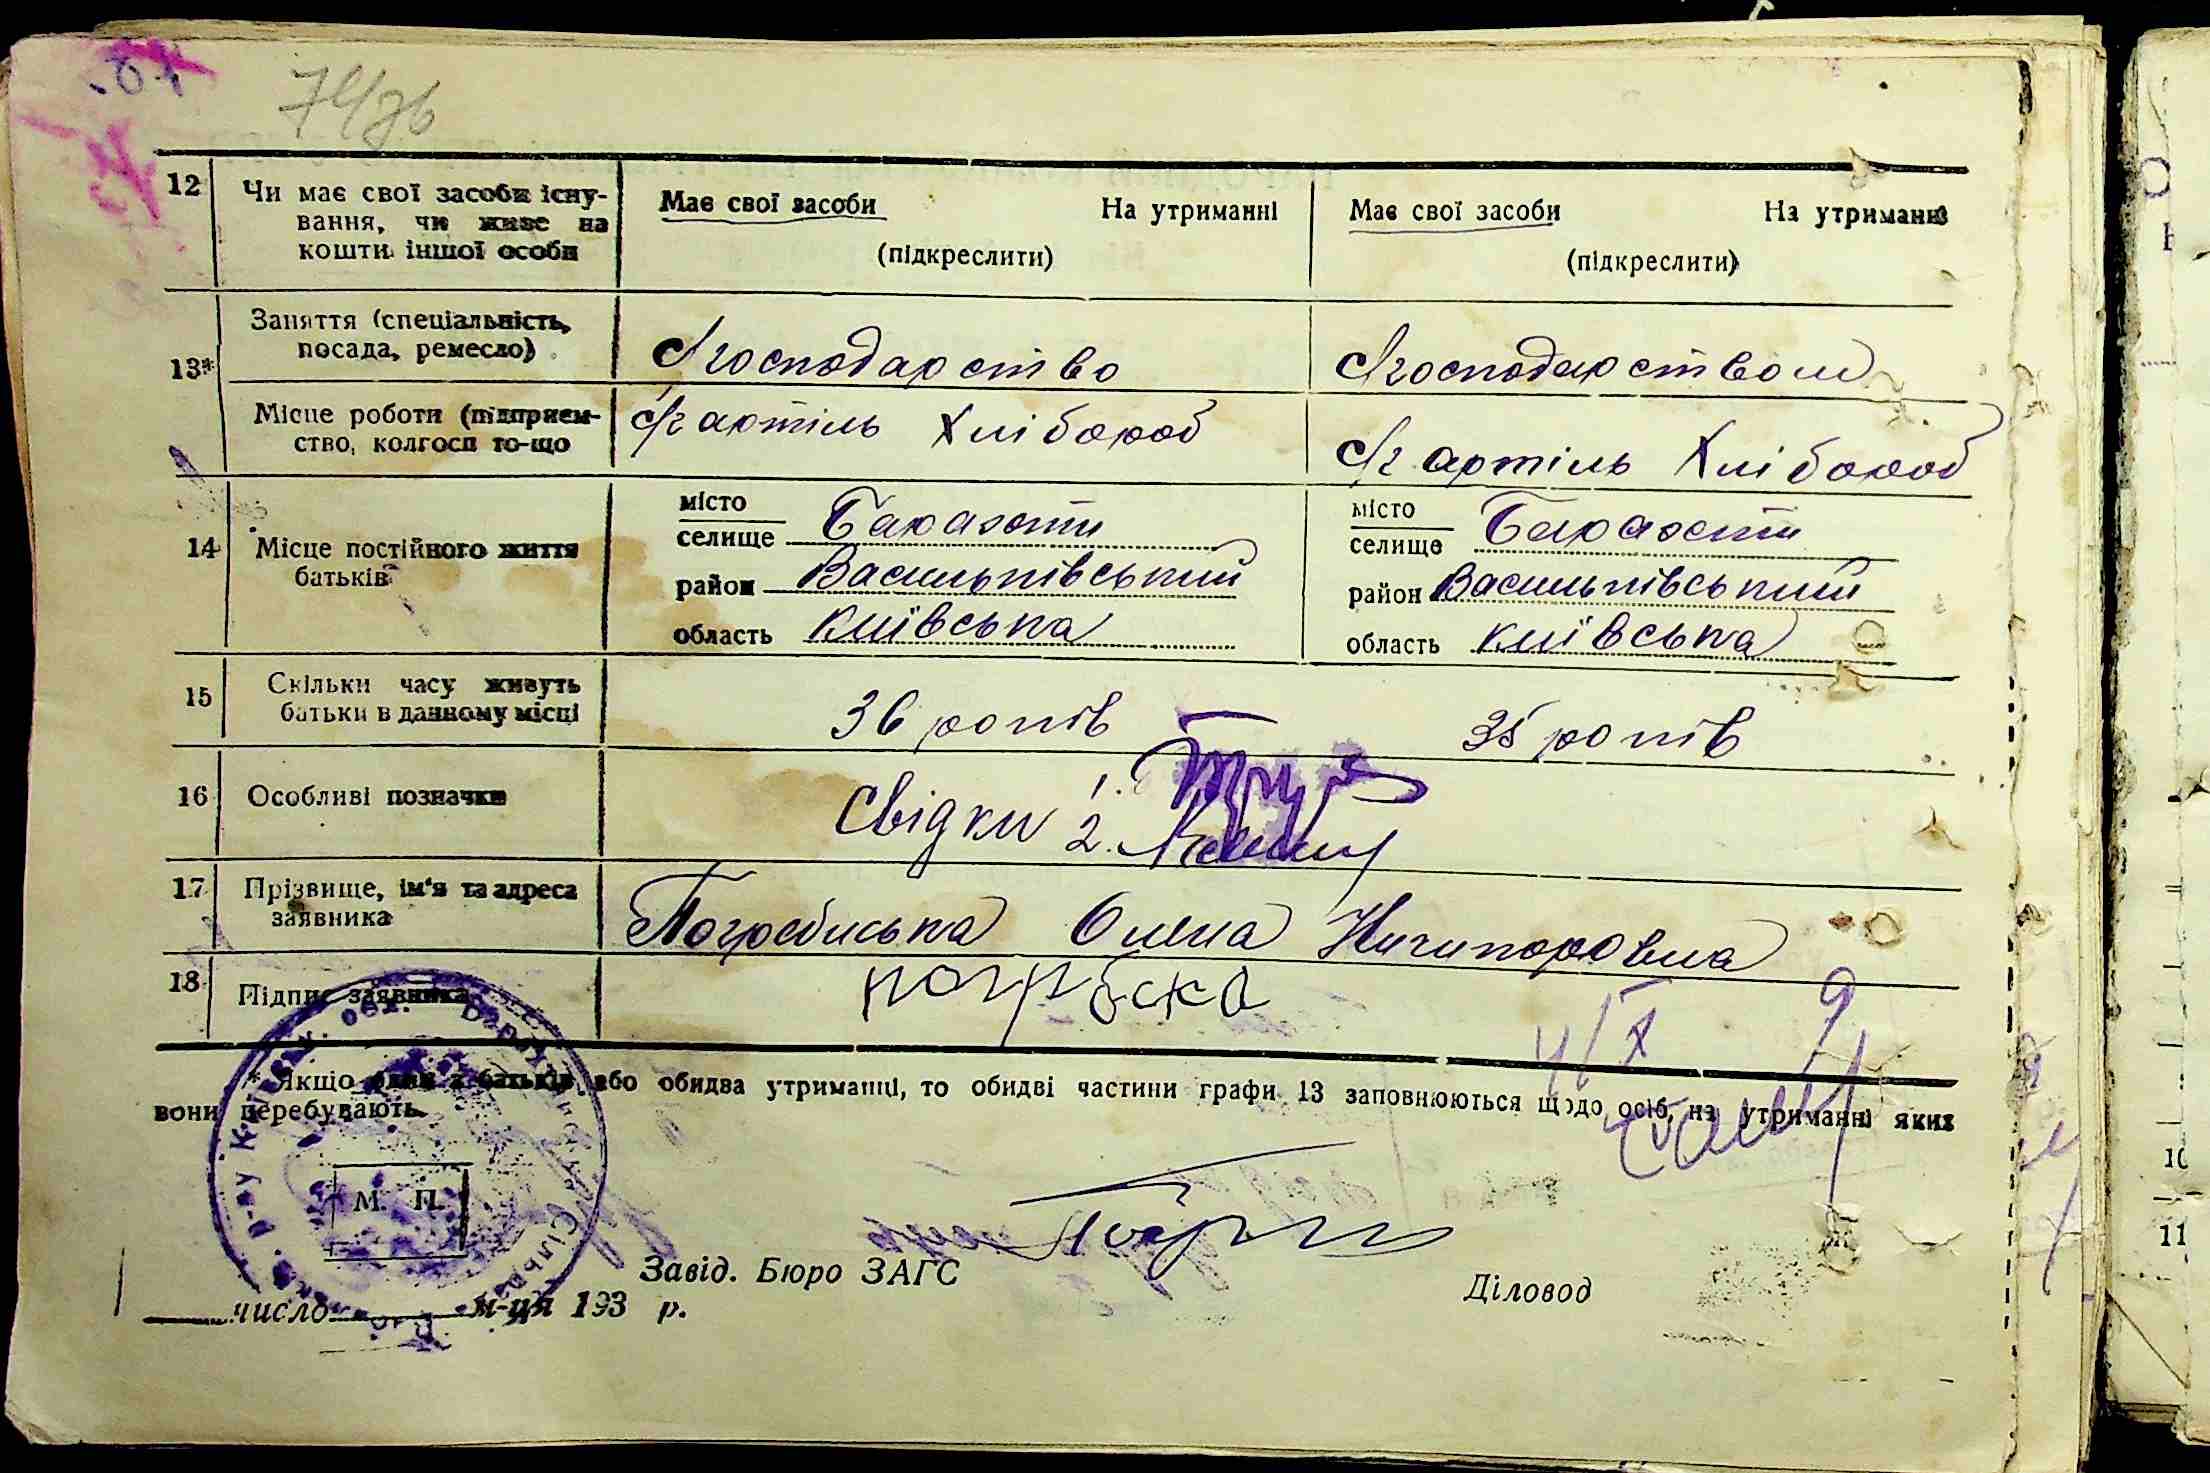 12 Чи має свої засоби існу-
вання, чи живе на
кошти іншої особи
Має свої засоби На утриманні
(підкреслити)
Має свої засоби На утриманні
(підкреслити)
13* Заняття (спеціальність,
посада, ремесло)
С/господарство
С/господарством
Місце роботи (підприєм-
ство, колгосп то-що
С/г артіль Хлібороб
С/г артіль Хлібороб
14 Місце постійного життя
батьків
місто
селище Барахти
район Васильківський
область Київська
місто
селище Барахти
район Васильківський
область Київська
15 Скільки часу живуть
батьки в данному місці
36 років
35 років
16 Особливі позначки
Свідки 1.
2.
17 Прізвище, ім'я та адреса
заявника
Погребиська Олена Ничипоровна
18 Підпис заявника
* Якщо один з батьків або обидва утриманці, то обидві частини графи 13 заповнюються щодо осіб, на утриманні яких
вони перебувають.
М. П.
Завід. Бюро ЗАГС
Діловод
число м-ця 193 р.